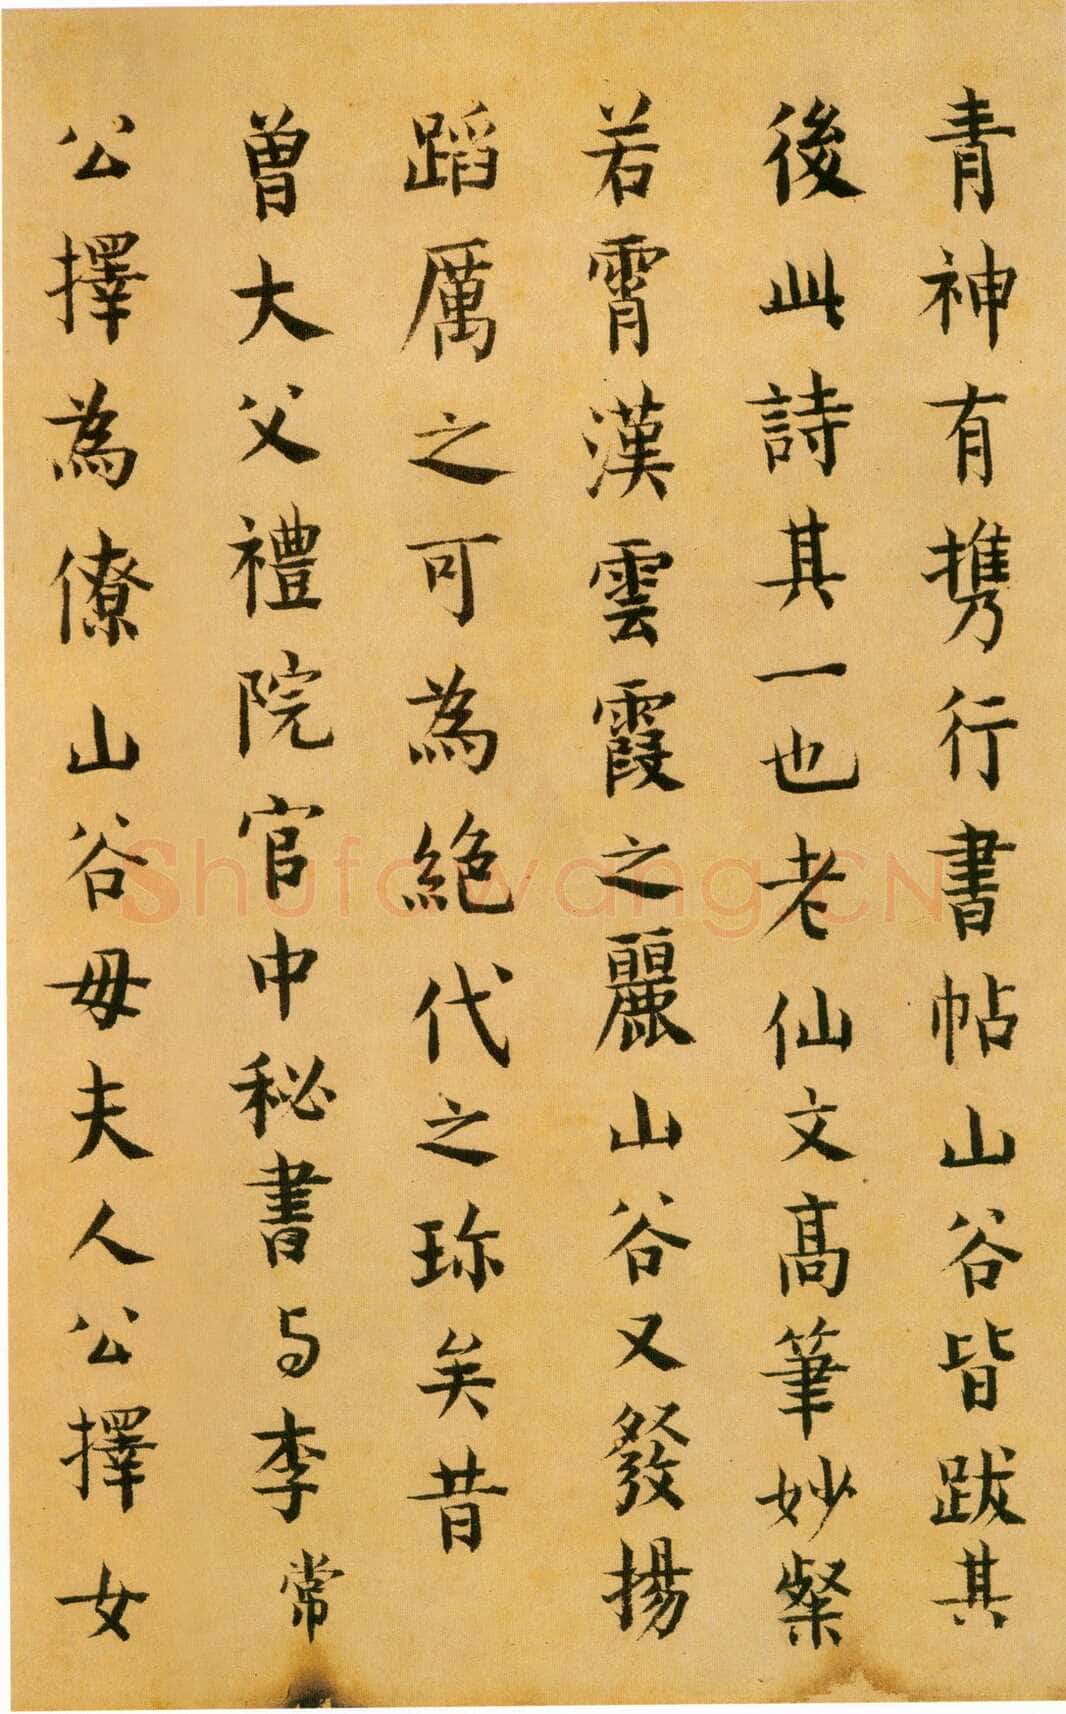 青神有攜行書帖山谷皆跋其
後此詩其一也老仙文高筆妙粲
若霄漢雲霞之麗山谷又發揚
蹈厲之可為絕代之珎矣昔
曾大父禮院官中秘書与李常
公擇為僚山谷母夫人公擇女
Shufawang.CN